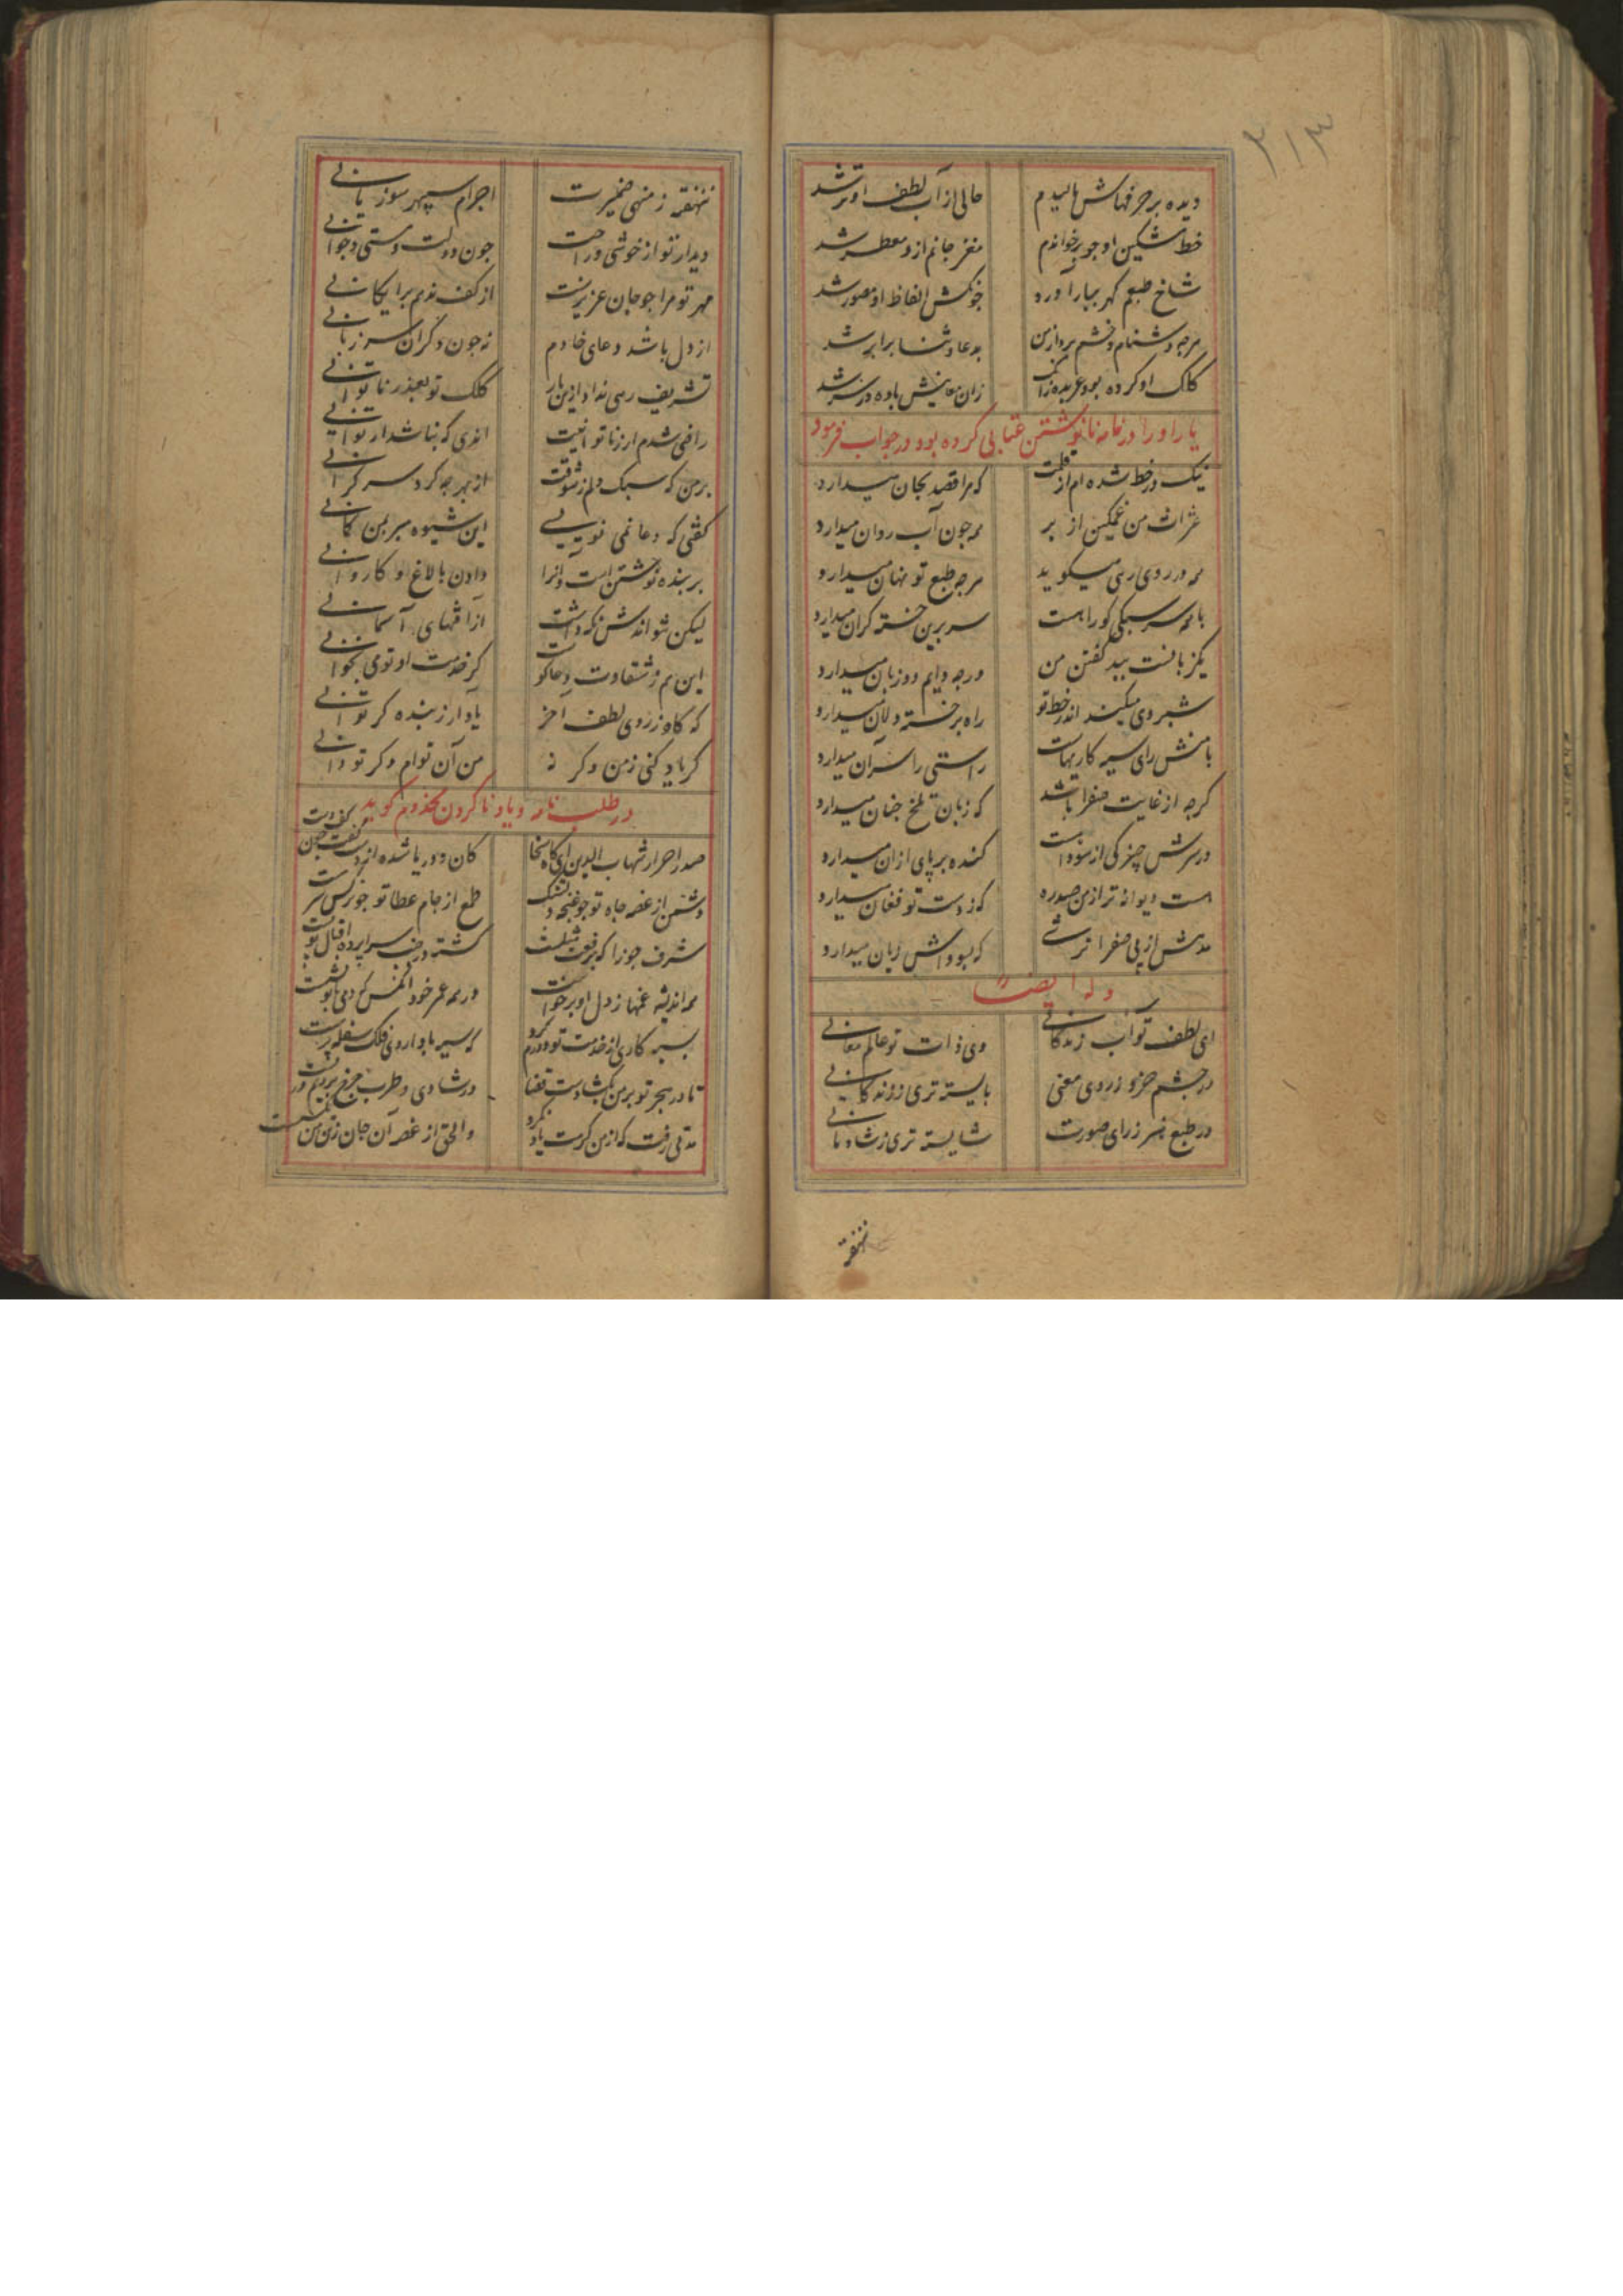 ۳۱۳
دیده بر حرفهاش مالیدم
حالی از آب لطف او تر شد
خط مشکین او چو برخواندم
مغز جانم ازو معطر شد
شاخ طبعم گهر ببار آورد
الفاظ او مصور شد
هرچه دشنام و خشم بود ازین
بدعا و ثنا برابر شد
کلک او کرده بود عربده زانک
زان معانیش باده در سر شد
یار او را در نامه نانوشتن عتابی کرده بود در جواب فرمود
نیک در خط شده‌ام از قلمت
که مرا قصد بجان میدارد
عثرات من غمگین از بر
همه چون آب روان میدارد
همه در روی رهی میگوید
هرچه طبع تو نهان میدارد
با همه سرسبکی کو راهست
سر برین خسته گران میدارد
یکزبانست ببد گفتن من
ورچه دایم دو زبان میدارد
شبروی میکند اندر خط تو
راه بر خسته دلان میدارد
با منش رای سیه کاریهاست
راستی را سر آن میدارد
گرچه از غایت صفرا باشد
که زبان تلخ چنان میدارد
در سرش چیزکی از سوداست
کنده بر پای ازان میدارد
هست دیوانه‌تر از من صد ره
که ز دست تو فغان میدارد
مدهش از پی صفرا ترشی
که بسوداش زیان میدارد
وله ایضا
ای لطف تو آب زندگانی
وی ذات تو عالم معانی
در چشم خرد ز روی معنی
بایسته‌تری ز زندگانی
در طبع هنر ز رای صورت
شایسته‌تری ز شادمانی
ننهفته ز منهی ضمیرت
اجرام سپهر سوزیانی
دیدار تو از خوشی و راحت
چون دولت و مستی و جوانی
مهر تو مرا چو جان عزیزست
از کف ندهم برایگانی
از دل باشد دعای خادم
نه چون دگران سر زبانی
تشریف رهی نداد ازین بار
کلک تو بعذر ناتوانی
راضی شدم ار ز ناتوانیست
اندی که نباشد از توانی
بر من که سبک دلم ز شوقت
از بهر چه کرد سر گرانی
گفتی که دعا نمی نویسی
این شیوه مبر بمن گمانی
بر بنده نوشتن است و آنرا
دادن بالاغ او کاروانی
لیکن نتواندش نگه داشت
از آفتهای آسمانی
این هم ز شقاوت دعاگوست
کز خدمت او تو می نخوانی
که گاه ز روی لطف آخر
یاد آر ز بنده گر توانی
گر یاد کنی ز من وگر نه
من آن توام دگر تو دانی
در طلب نامه و یاد ناکردن مخدوم گوید
صدر احرار شهاب الدین ای کان سخا
کان و دریا شده از دست
دشمن از غصه جاه تو چو غنچه دلتنگ
طمع از جام عطا تو چو نرگس سرمست
شرف جوزا که برفعت مثلست
گشته در سراپرده اقبال تو پست
همه اندیشه غمها ز دل او برخاست
در همه عمر خود آنکس که دمی با تو نشست
بسیه کاری از خدمت تو دورم کرد
که سیه باد ا روی فلک سفله پرست
تا در هجر تو بر من بگشادست قضا
در شادی و طرب چرخ بریم در بست
مدتی رفت که از من کرمت یاد نکرد
والحق از غصه آن جان و تن من
ننهفته